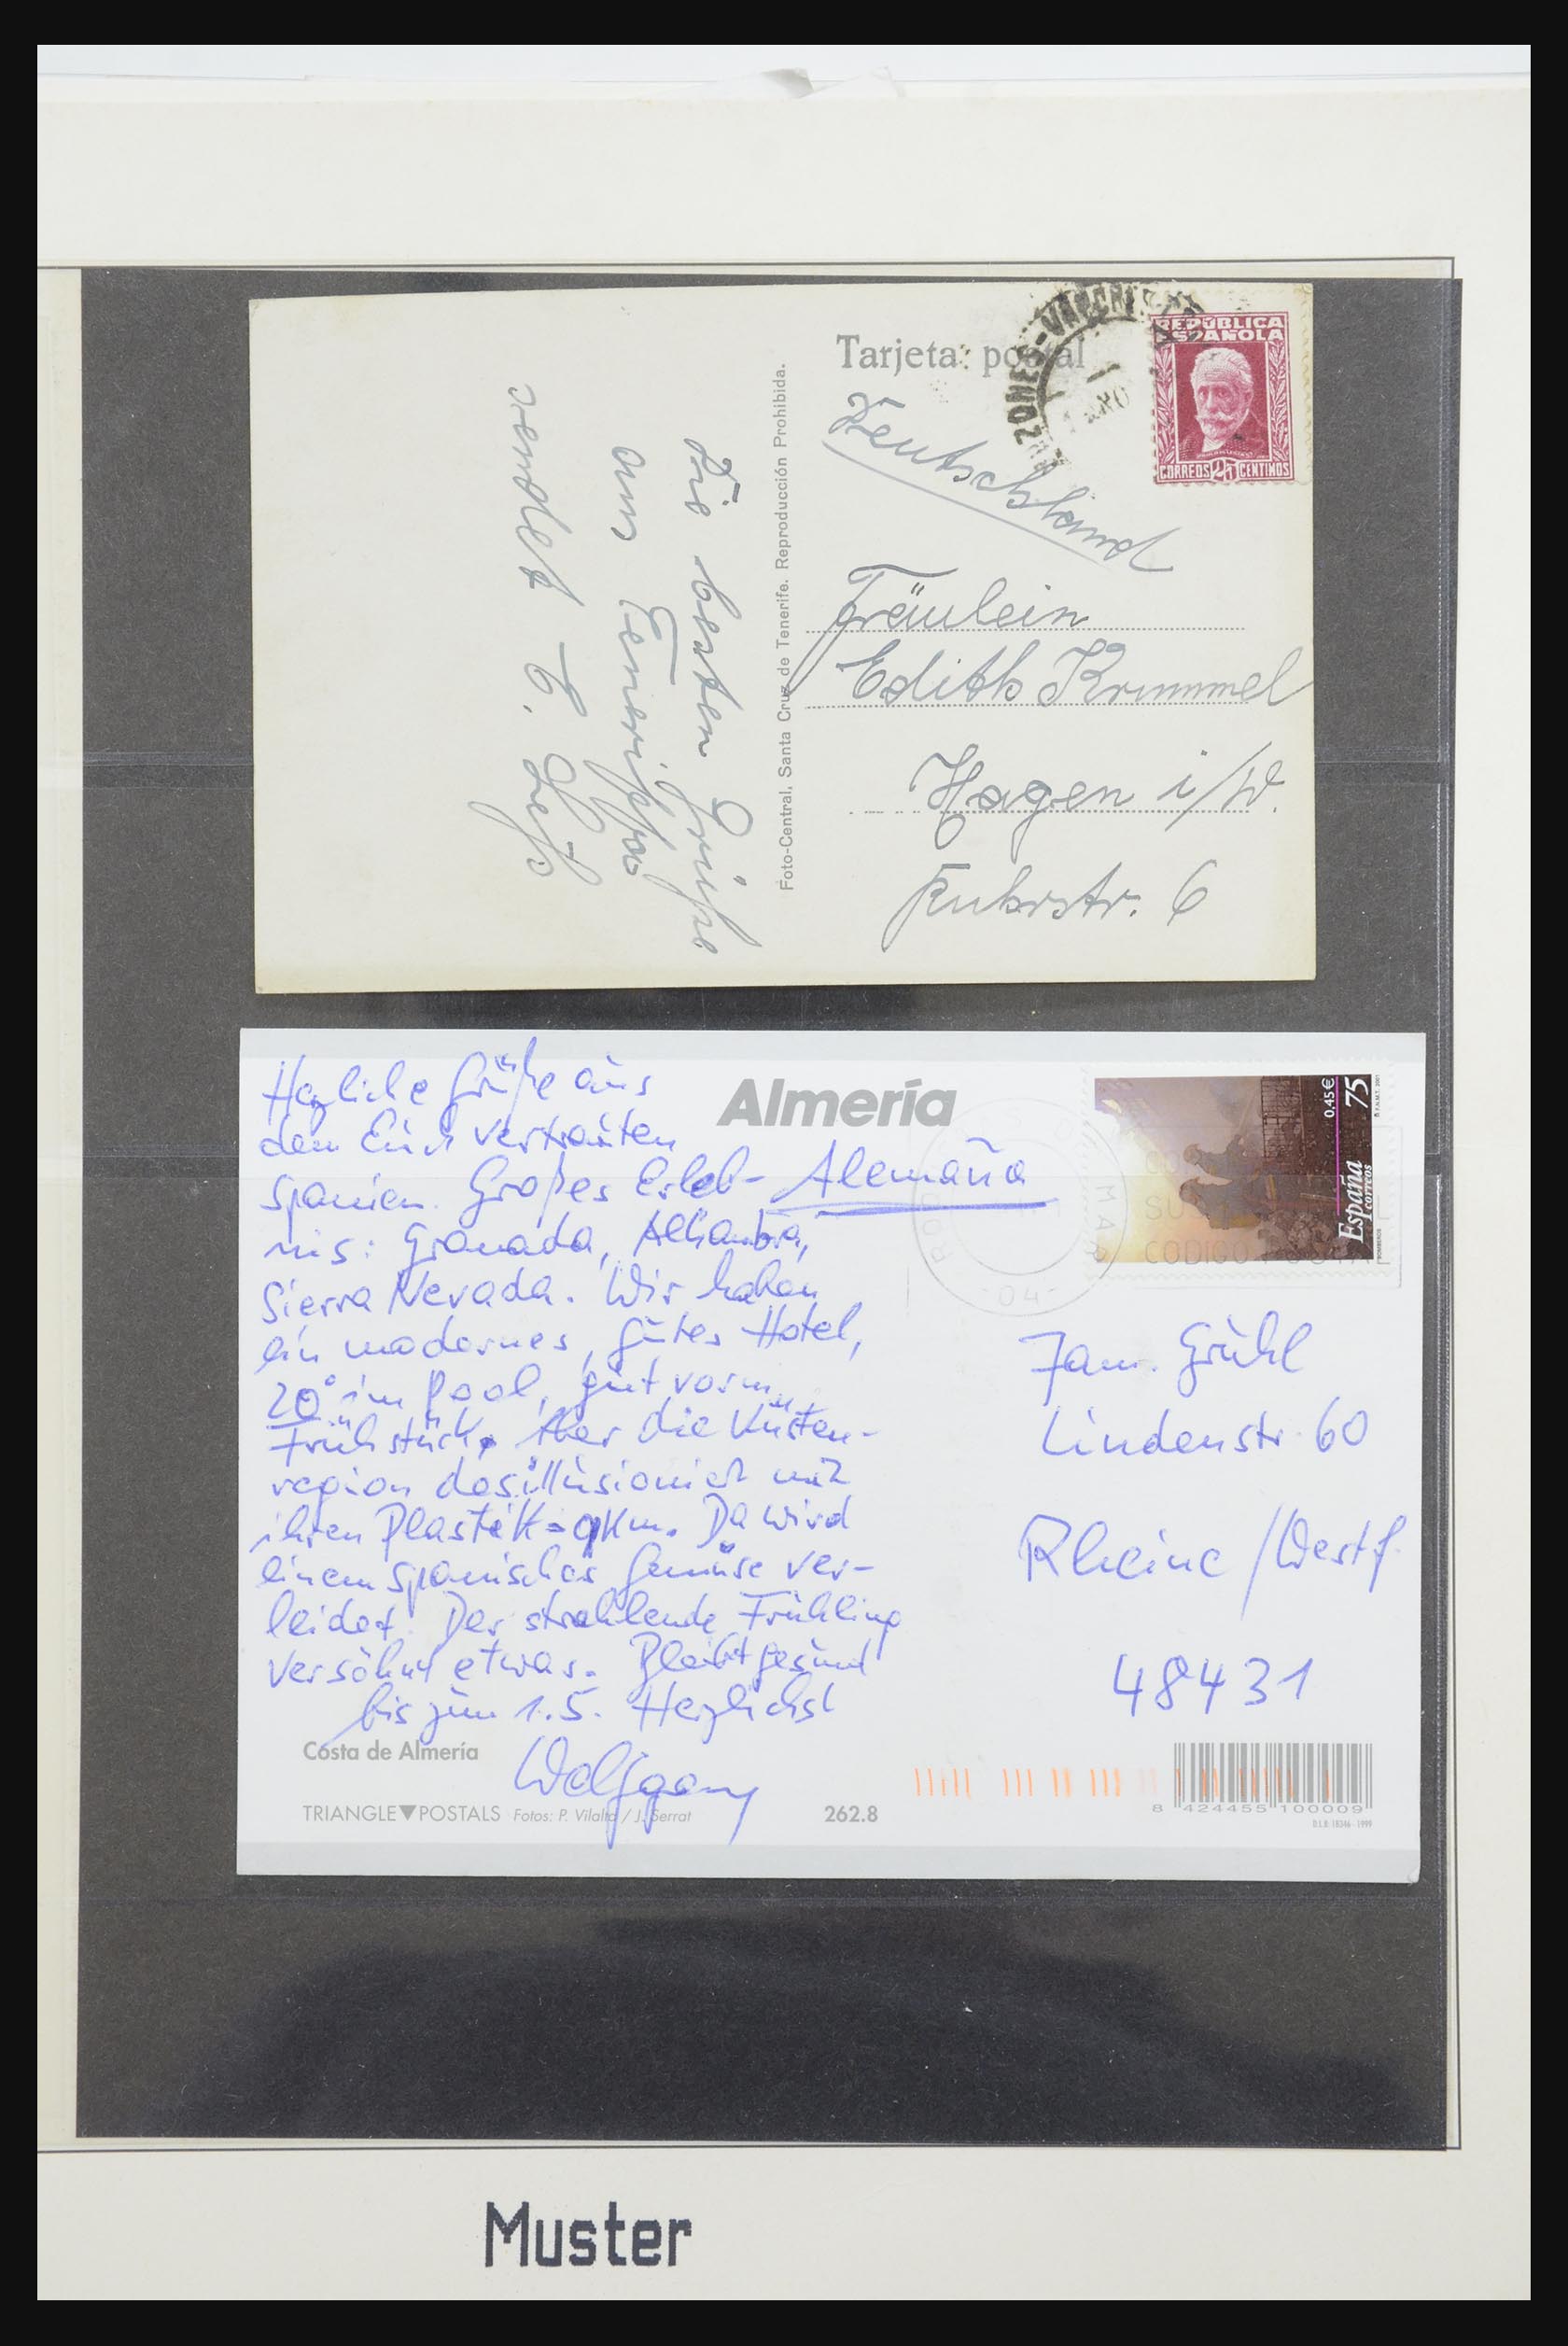 Tarjeta postal
REPÚBLICA
ESPAÑOLA
CORREOS 25 CENTIMOS
Deutschland
Fräulein
Edith Krummel
Hagen i/W.
Ruhrstr. 6
Foto-Central, Santa Cruz de Tenerife. Reproducción Prohibida.
Die besten Grüße
aus Teneriffa
sendet E.
Almería
Herzliche Grüße aus
dem Euch vertrauten
Spanien. Großes Erleb-
nis: Granada, Alhambra,
Sierra Nevada. Wir haben
ein modernes, gutes Hotel,
20° im Pool, gut vorm
Frühstück. Aber die Küsten-
region desillusioniert mit
ihren Plastik-qkm. Da wird
einem spanisches Gemüse ver-
leidet. Der strahlende Frühling
versöhnt etwas. Bleibt gesund
bis zum 1.5. Herzlichst
Wolfgang
Alemaña
0,45€
75
España
correos
BOMBEROS
CODIGO POSTAL
04
Fam. Grühl
Lindenstr. 60
Rheine/Westf.
48431
Costa de Almería
TRIANGLE▼POSTALS Fotos: P. Vilalta / J. Serrat
262.8
8 424455 100009
D.L.B. 18346-1999
Muster